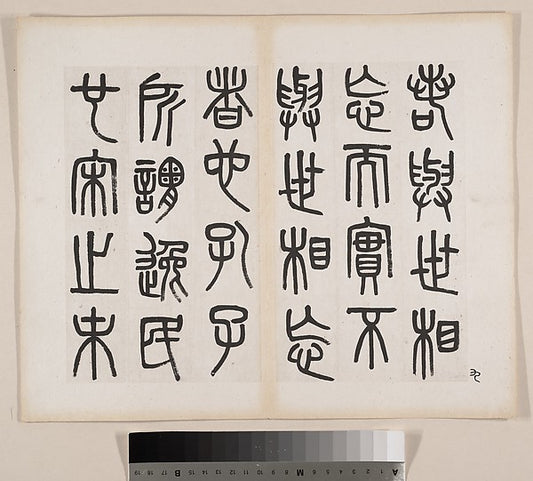 若與世相
忘而實不
與世相忘
者也孔子
所謂逸民
宋止未